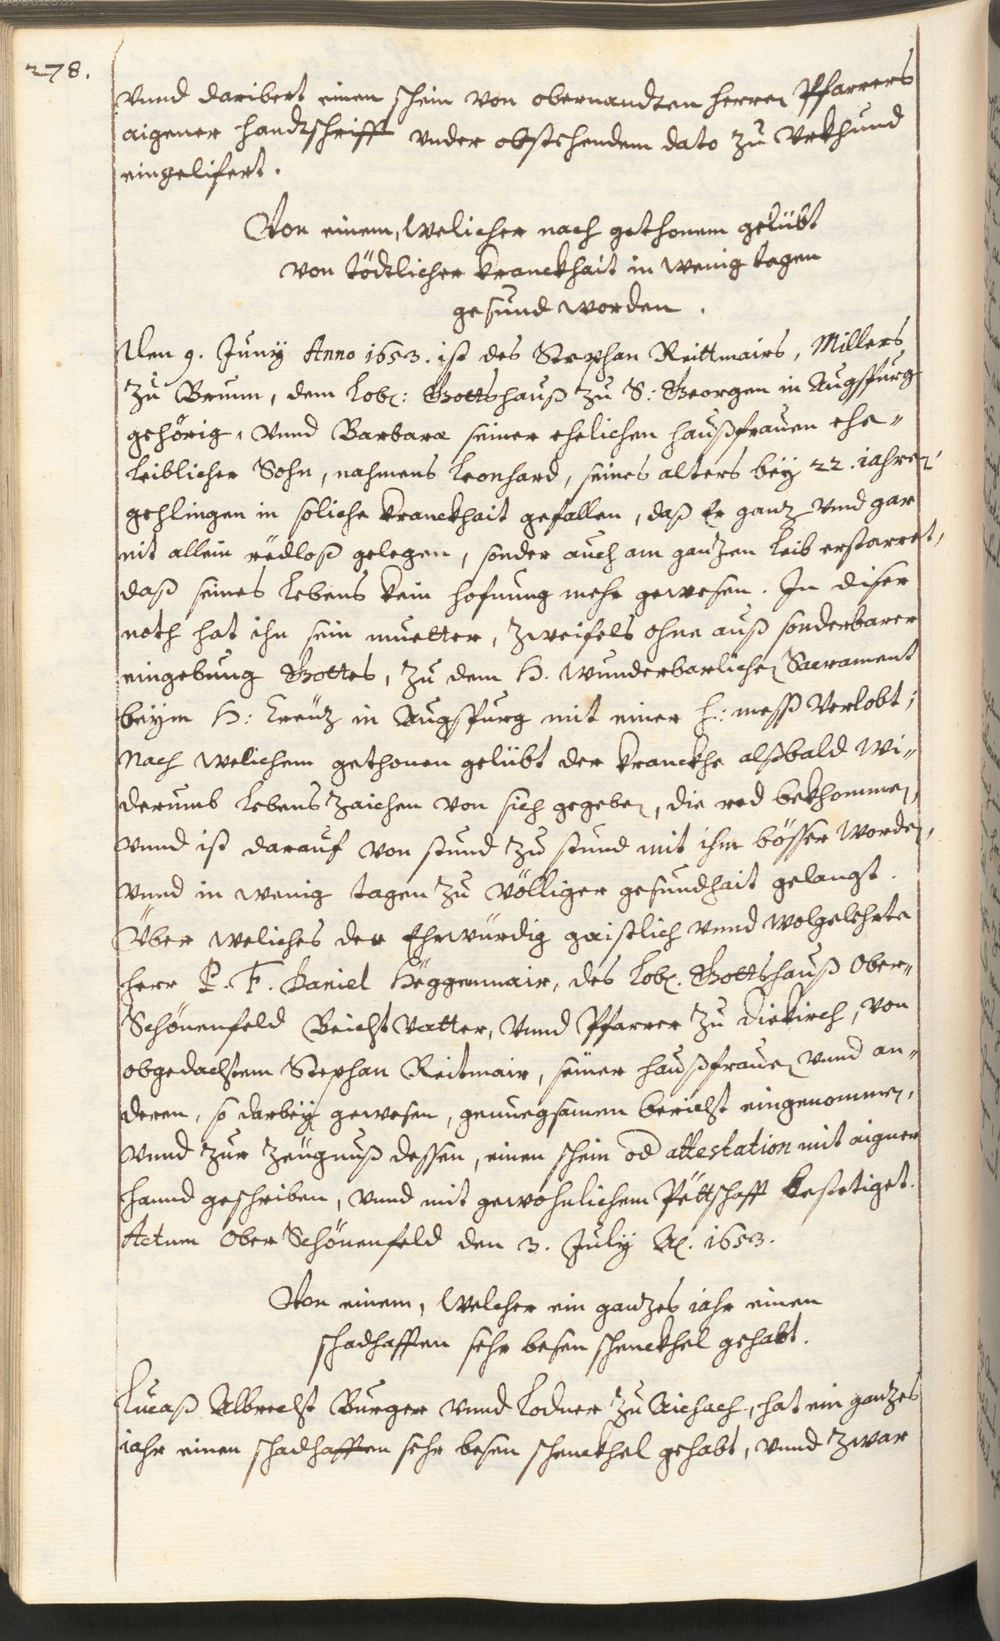 278.
vnnd daribert einen schein von obernandten herren Pfarrers
aigener handtschrifft vnder obstehendem dato zu Vrkhund
eingelifert.
Von einem, Welicher nach gethonem gelübt
von tödtlicher kranckhait in wenig tagen
gesund worden.
Den 9. Juny Anno 1653. ist des Stephan Reittmairs, Millers
zu Brunn, dem Lobl: Gottshauß zu S: Georgen in Augspurg
gehörig, vnnd Barbaræ seiner ehelichen haußfrauen ehe„
leiblicher Sohn, nahmens Leonhard, seines alters bey 22. iahren
gehlingen in soliche kranckhait gefallen, daß Er gantz vnd gar
nit allein redloß gelegen, sonder auch am gantzen Leib erstarret,
daß seines Lebens kein hofnung mehr gewesen. In diser
noth hat ihn sein muetter, zweifels ohne auß sonderbarer
eingebung Gottes, zu dem H. wunderbarlichen Sacrament
beÿm H: Creütz in Augspurg mit einer h: mess Verlobt;
Nach welichem gethonen gelübt der kranckhe alßbald Wi„
derumb Lebenszaichen von sich gegeben, die red bekhommen,
vnnd ist darauf von stund zu stund mit ihm bösser worden,
vnnd in wenig tagen zu völliger gesundhait gelangt.
Vber weliches der Ehrwürdig gaistlich vnnd wolgelehrte
herr P. F. Daniel Höggenmair, des Lobl. Gottshauß Ober„
Schönenfeld Beicht Vatter, vnnd Pfarrer zu Diekirch, von
obgedachtem Stephan Reitmair, seiner haußfrauen vnnd an„
deren, so darbey gewesen, genuegsamen bericht eingenommen,
vnnd zur zeugnuß dessen, einen schein od attestation mit aigner
hannd geschriben, vnnd mit gewohnlichem Pettschafft bestetiget.
Actum Ober Schönenfeld den 3. July Aō. 1653.
Von einem, Welcher ein gantzes iahr einen
schadhafften sehr besen schenckhel gehabt.
Lucaß Albrecht Burger vnnd Lodner zu Aichach, hat ein gantzes
iahr einen schadhafften sehr besen schenckhel gehabt, vnnd zwar